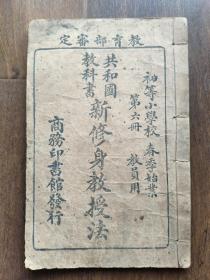 教育部審定
初等小學校 春季始業
第六冊 教員用
共和國
教科書
新修身教授法
商務印書館發行